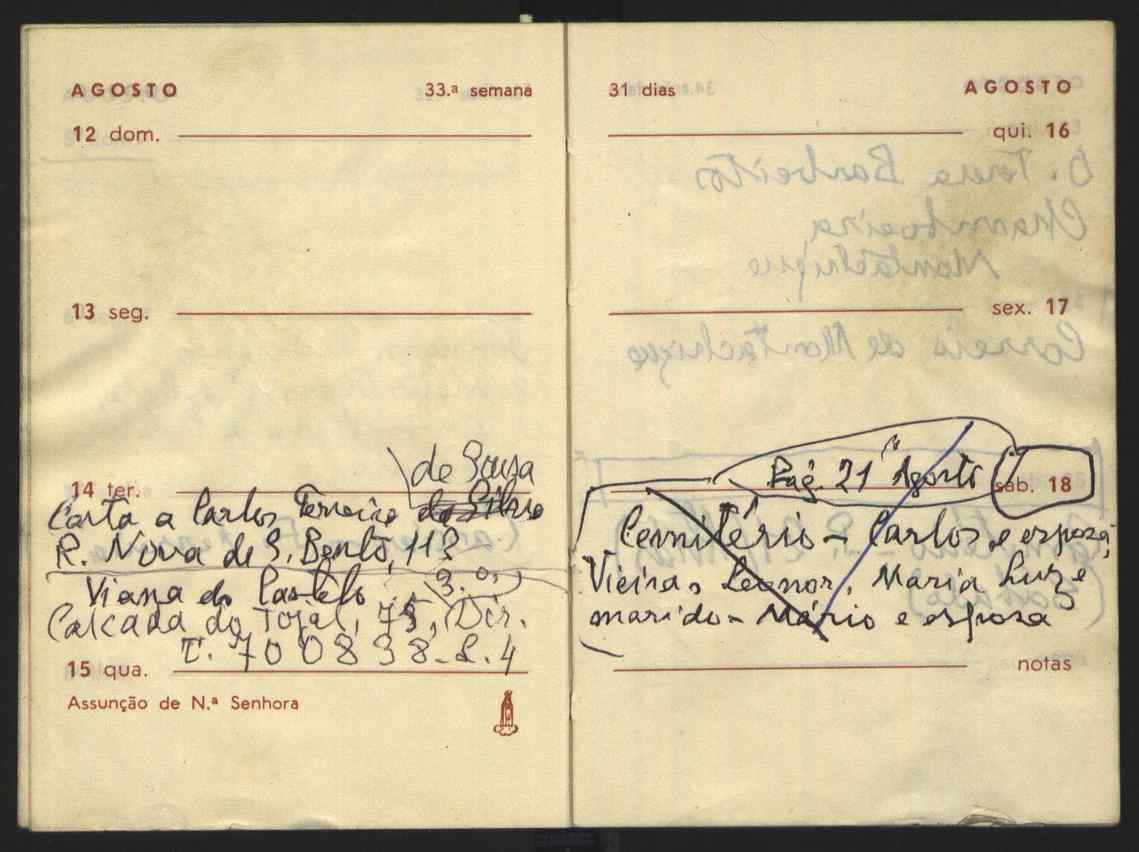 AGOSTO 33.ª semana
12 dom.
13 seg.
de Sousa
14 ter.
Carta a Carlos Ferreira da Silva
R. Nova de S. Bento, 113
Viana do Castelo 3.º,
Calcada do Tojal, 75, Dir.
T. 700838-L.4
15 qua.
Assunção de N.ª Senhora
31 dias AGOSTO
qui. 16
D. Teresa Barbeitos
Chamboeira
Montachique
sex. 17
Correio de Montachique
Pág. 21 Agosto
sáb. 18
Cemitério - Carlos e esposa,
Vieira, Leonor, Maria Luz e
marido - Mário e esposa
notas